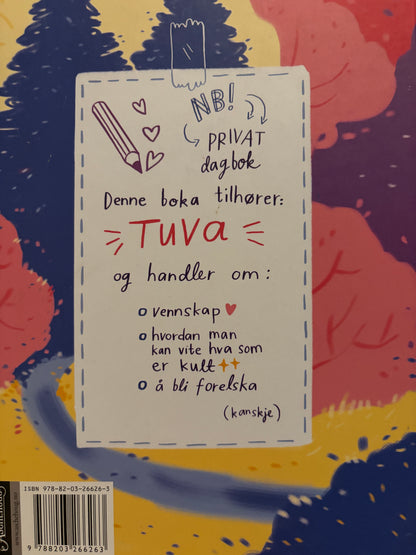 NB!
PRIVAT
dagbok
Denne boka tilhører:
TUVA
og handler om:
vennskap
hvordan man
kan vite hva som
er kult
å bli forelska
(kanskje)
ISBN 978-82-03-26626-3
9 788203 266263